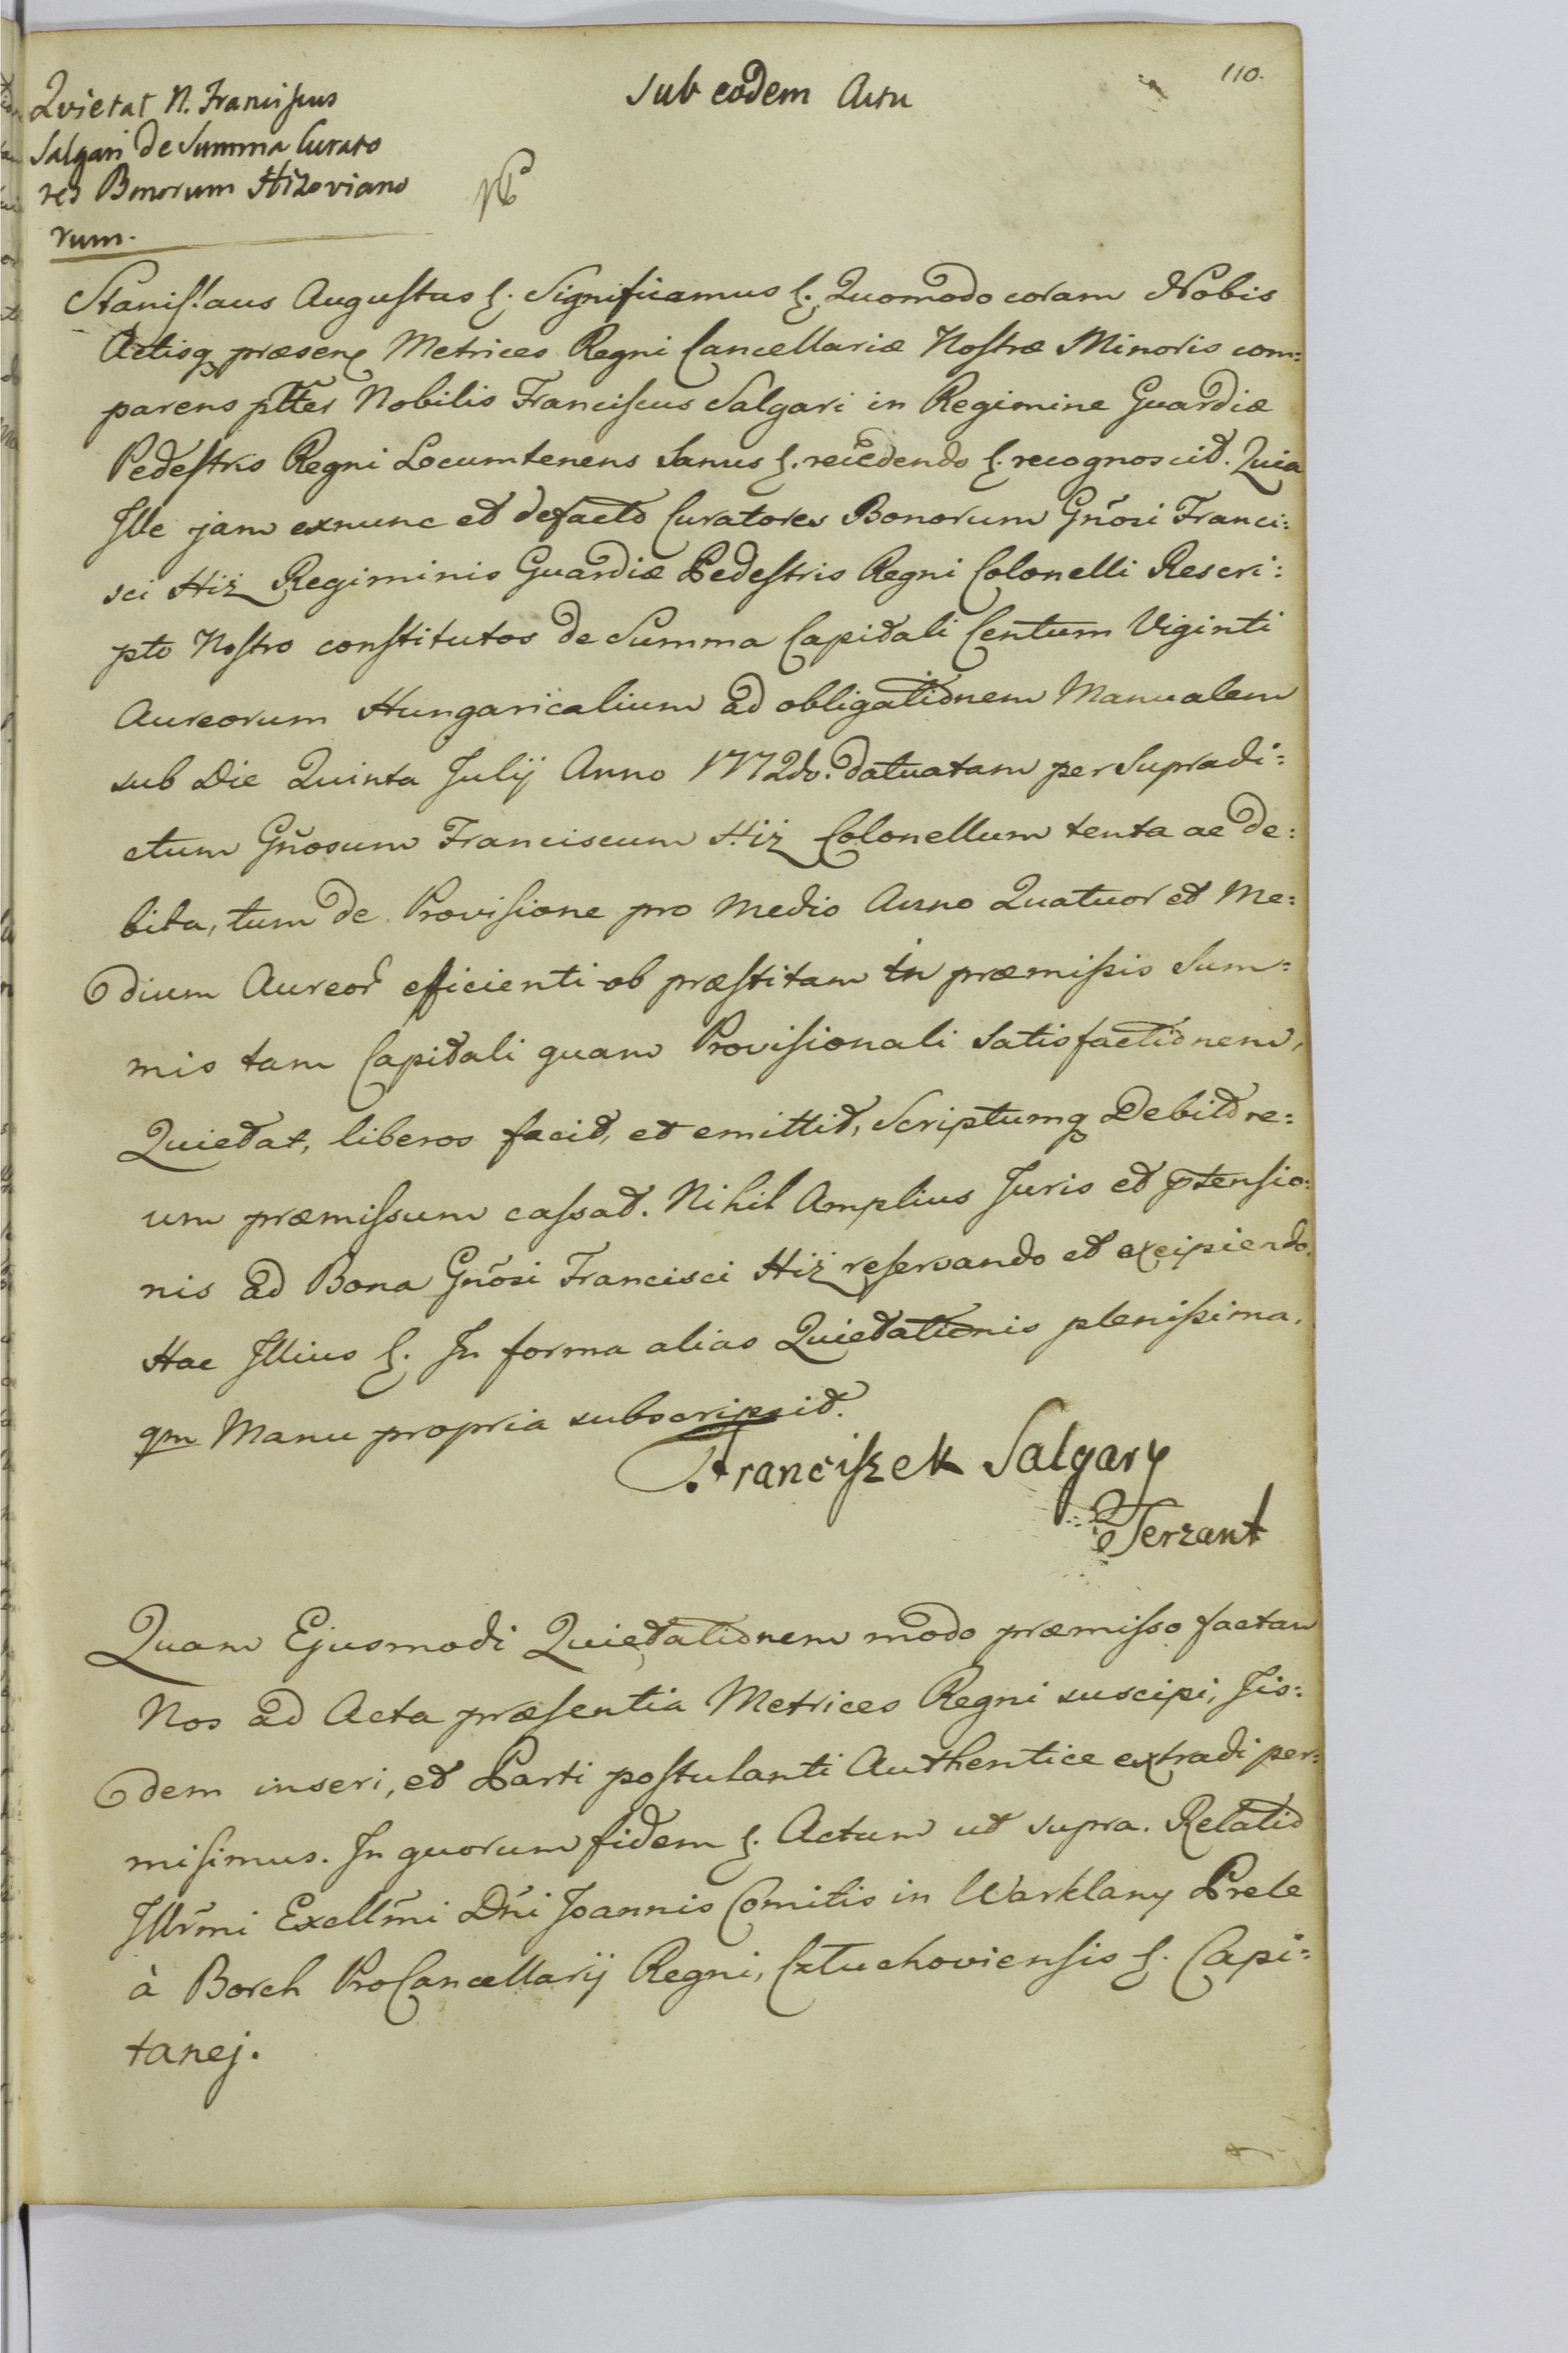 110.
Sub eodem Actu
Quietat N. Franciscus
Salgari de Summa Curato
res Bonorum Hizoviano
rum.
Stanislaus Augustus &. Significamus &. Quomodo coram Nobis
Actisq præsen Metrices Regni Cancellariæ Nostræ Minoris com:
parens pltter Nobilis Franciscus Salgari in Regimine Guardiæ
Pedestris Regni Locumtenens Sanus &. recedendo &. recognoscit. Quia
Ille jam exnunc et defacto Curatores Bonorum Gñosi Franci:
sci Hiż Regiminis Guardiæ Pedestris Regni Colonelli Rescri:
pto Nostro constitutos de Summa Capitali Centum Viginti
Aureorum Hungaricalium ad obligationem Manualem
sub Die Quinta Julij Anno 1772do. datuatam per Supradi:
ctum Gñosum Franciscum Hiż Colonellum tenta ac de:
bita, tum de Provisione pro Medio Anno Quatuor et Me:
dium Aureor efficienti ob præstitam in præmissis Sum:
mis tam Capitali quam Provisionali Satisfactionem,
Quietat, liberos facit, et emittit, Scriptumq Debitore:
um præmissum cassat. Nihil Amplius Juris et ptensio:
nis ad Bona Gñosi Francisci Hiż reservando et excipiendo.
Hac Illius &. In forma alias Quietationis plenissima.
qm Manu propria subscripsit.
Franciszek Salgary
Serzant
Quam Ejusmodi Quietationem modo præmisso factam
Nos ad Acta præsentia Metrices Regni suscipi, Jis:
dem inseri, et Parti postulanti Authentice extradi per:
misimus. In quorum fidem &. Actum ut supra. Relatio
Illrm̃i Excellm̃i Dñi Joannis Comitis in Warklany Prele
à Borch ProCancellarij Regni, Człuchoviensis &. Capi:
tanej.